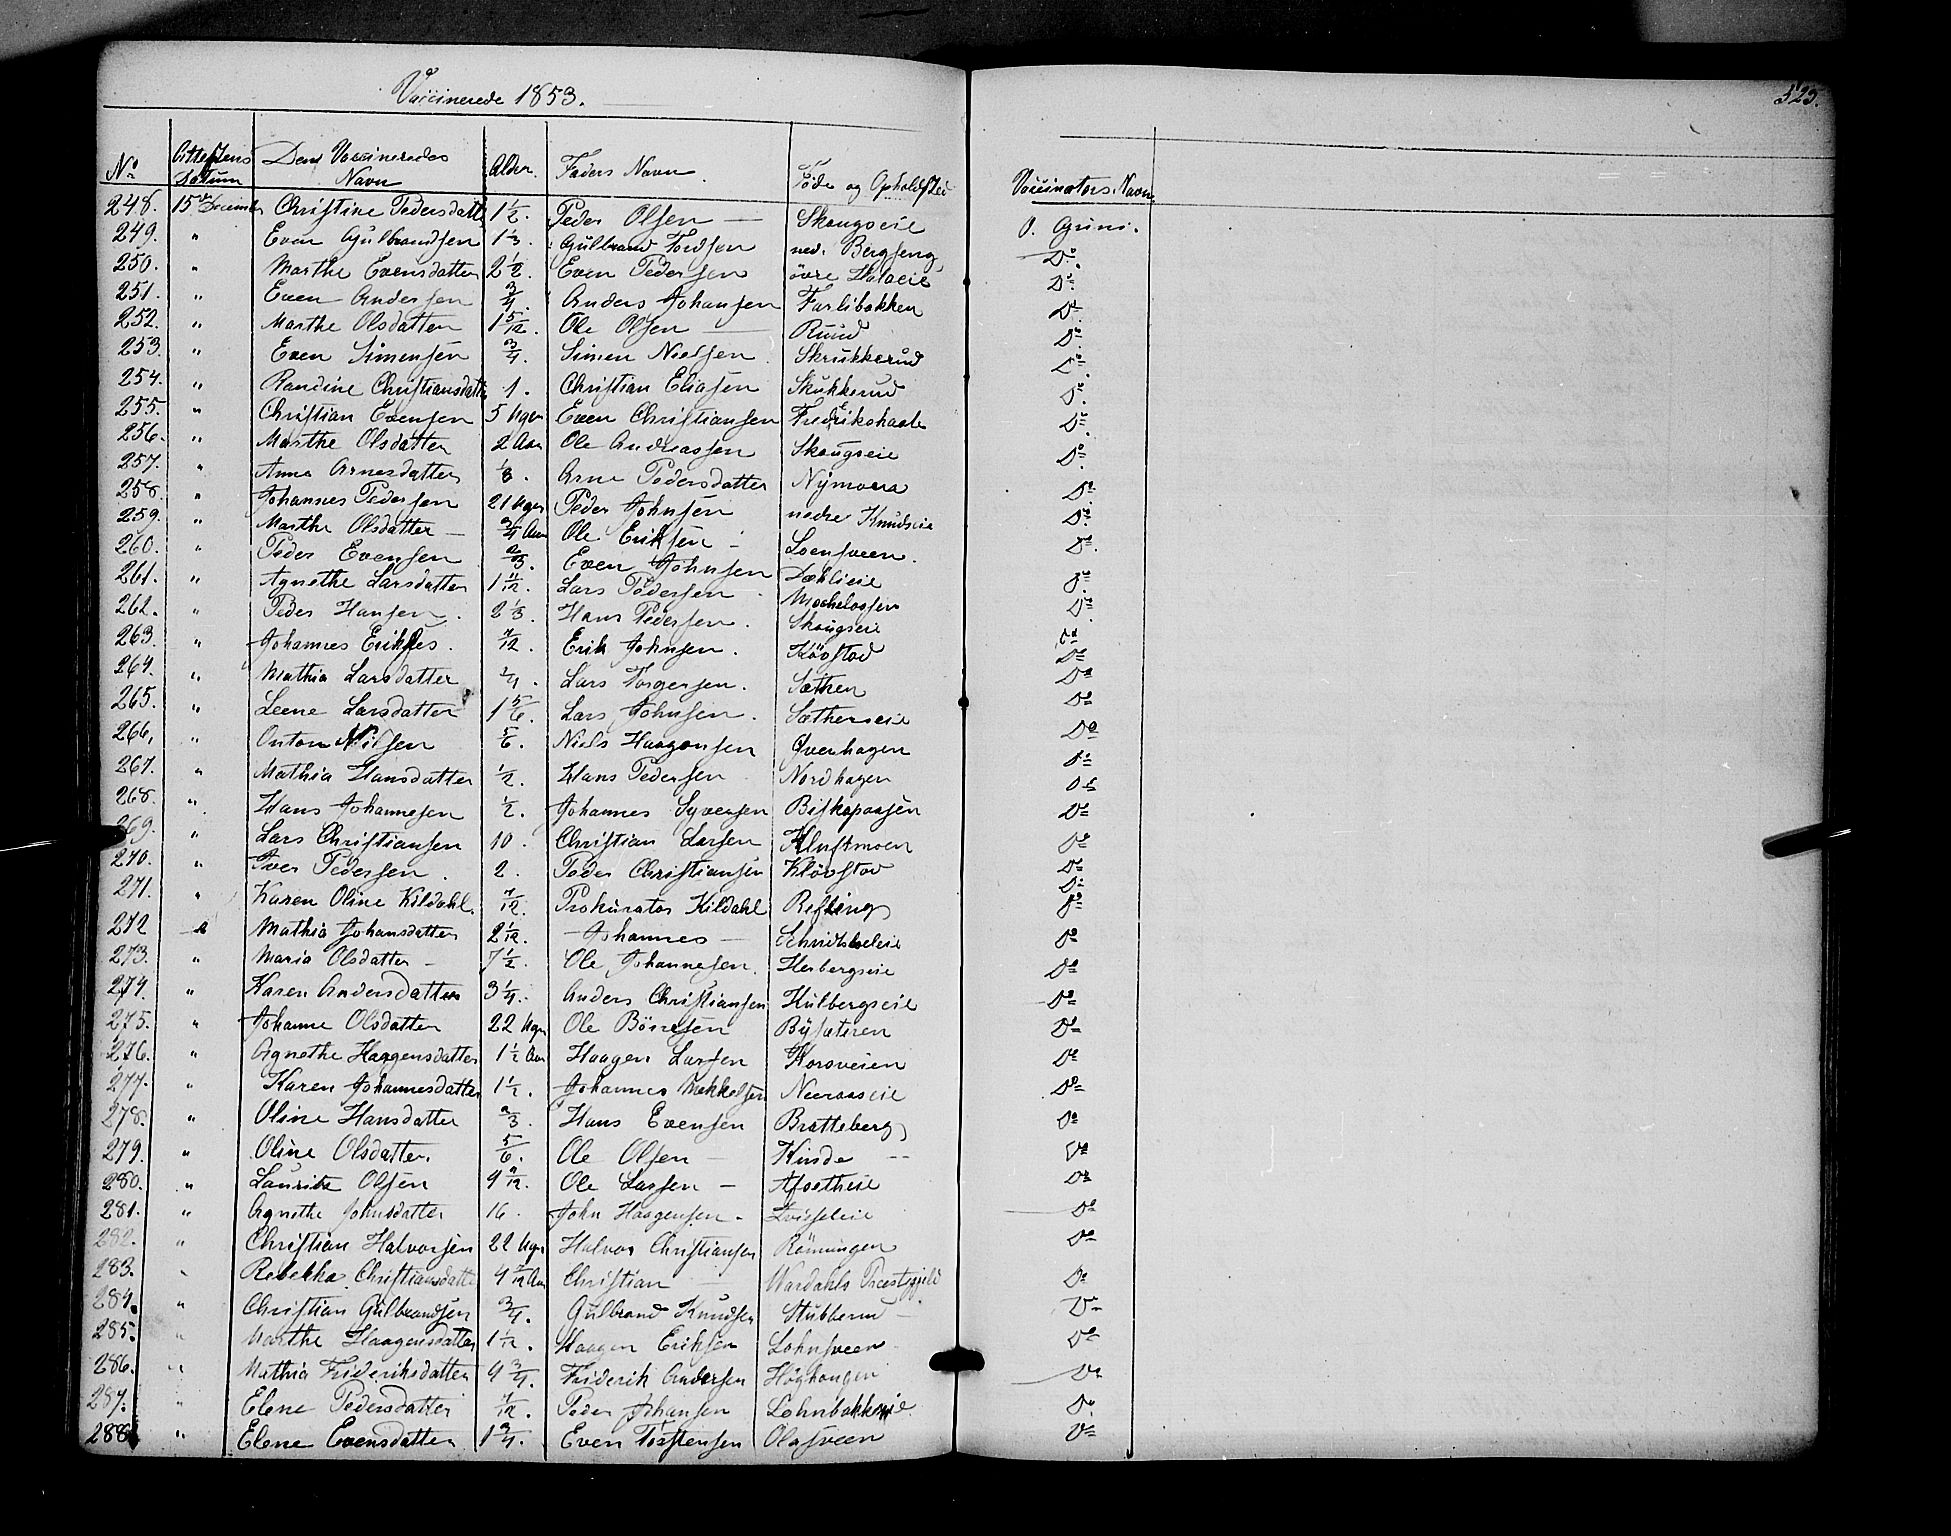 Vaccinerede 1853.
523.
No Attestens Datum Den Vaccineredes Navn Alder. Faders Navn. Føde og Opholdsted Vaccinators Navn
248. 15de December Christine Pedersdatter 1 1/2. Peder Olsen — Skougseie O. Gruni.
249. " Even Gulbrandsen 1 1/3. Gulbrand Tordsen ned. Bergseng Do.
250. " Marthe Evensdatter 2 1/2. Even Pedersen övre Do.
251. " Even Andersen 3/4. Anders Johansen Farlibakken Do
252. " Marthe Olsdatter 1 5/12. Ole Olsen — Ruud Do
253. " Even Simensen 3/4. Simen Nielsen Skrukkerud Do
254. " Randine Christiansdatter 1. Christian Eliasen Skukkerud Do.
255. " Christian Evensen 5 Uger Even Christiansen Fredrikshald Do
256. " Marthe Olsdatter 2 Aar Ole Andreassen Skougseie Do
257. " Anne Arnesdatter Arne Pedersdatter Nymoen Do
258. " Johannes Pedersen 21 Uger Peder Johnsen nedre Knudseie Do
259. " Marthe Olsdatter — 3/4 Aar Ole Eriksen — Loensveen. Do.
260. " Peder Evensen 2/3. Even Johnsen Dæhlieie Do
261. " Agnethe Larsdatter 1 11/12. Lars Pedersen. Do
262. " Peder Hansen. 2 1/3. Hans Pedersen. Skougseie Do
263. " Johannes Eriksen. 7/12. Erik Johnsen. Klöfstad Do
264. " Mathia Larsdatter 1/4. Lars Torgersen. Sæthen Do
265. " Leene Larsdatter 1 5/6. Lars Johnsen. Sætherseie Do
266. " Anton Nilsen 5/6. Niels Haagensen Qvenhagen Do
267. " Mathia Hansdatter 1/2. Hans Pedersen Nordhagen Do
268. " Hans Johannesen 1/2. Johannes Syversen Biskopaasen Do
269. " Lars Christiansen 10. Christian Larsen Kluftmoen Do
270. " Iver Pedersen. 2. Peder Christiansen Klöfstad Do
271. " Karen Oline Kildahl. 7/12. Prokurator Kildahl Refling Do
272 " Mathia Johansdatter 2 1/12. — Johannes — Do
273. " Maria Olsdatter — 7 1/2. Ole Johannesen. Herbergseie Do
274. " Karen Andersdatter 3 1/4. Anders Christiansen Hulbergseie Do
275. " Johanne Olsdatter 22 Uger Ole Börresen Bysæteren Do
276. " Agnethe Haagensdatter 1 1/2 Aar Haagen Larsen Korsveien Do
277. " Karen Johannesdatter 1 1/2. Johannes Mekkelsen Neeraaseie Do
278. " Oline Hansdatter 2/3. Hans Evensen Bratteberg Do
279. " Oline Olsdatter. 5/6. Ole Olsen — Kinde — Do
280. " Laurits Olsen 4 /12. Ole Larsen — Afsetheie Do
281. " Agnethe Johnsdatter 16. John Haagensen. Do
282. " Christian Halvorsen 22 Uger Halvor Christiansen Rönningen Do
283. " Rebekka Christiansdatter 4 /12 Aar Christian — Wardahls Præstegjeld Do
284. " Christian Gulbrandsen 3/4. Gulbrand Knudsen Stubberud — Do
285. " Marthe Haagensdatter 1 1/12. Haagen Eriksen Lohnsveen Do
286. " Mathia Frideriksdatter 4 3/4. Friderik Andersen Höghaugen Do
287. " Elene Pedersdatter 7/12. Peder Johansen Lohnbakkeeie Do
288. " Elene Evensdatter 1 3/4. Even Torstensen Olasveen Do